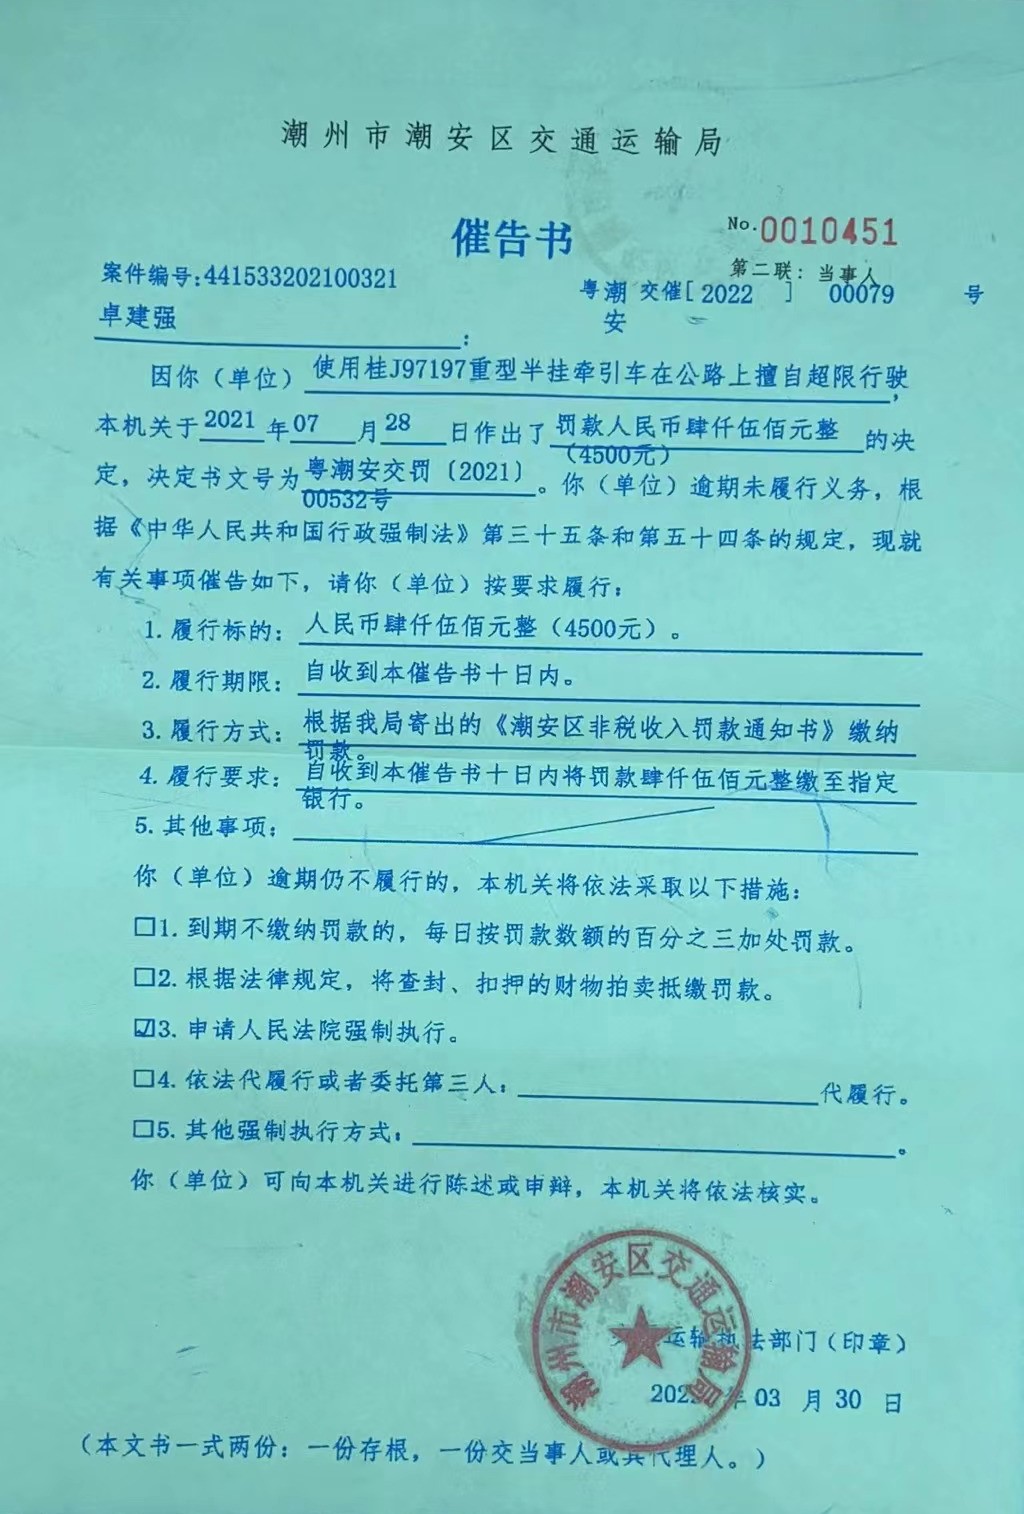 潮州市潮安区交通运输局
催告书
No.0010451
第二联：当事人
案件编号:441533202100321
粤潮安交催[2022]00079号
卓建强：
因你（单位）使用桂J97197重型半挂牵引车在公路上擅自超限行驶，
本机关于2021年07月28日作出了罚款人民币肆仟伍佰元整（4500元）的决
定，决定书文号为粤潮安交罚〔2021〕00532号。你（单位）逾期未履行义务，根
据《中华人民共和国行政强制法》第三十五条和第五十四条的规定，现就
有关事项催告如下，请你（单位）按要求履行：
1.履行标的：人民币肆仟伍佰元整（4500元）。
2.履行期限：自收到本催告书十日内。
3.履行方式：根据我局寄出的《潮安区非税收入罚款通知书》缴纳
罚款。
4.履行要求：自收到本催告书十日内将罚款肆仟伍佰元整缴至指定
银行。
5.其他事项：
你（单位）逾期仍不履行的，本机关将依法采取以下措施：
□1.到期不缴纳罚款的，每日按罚款数额的百分之三加处罚款。
□2.根据法律规定，将查封、扣押的财物拍卖抵缴罚款。
☑3.申请人民法院强制执行。
□4.依法代履行或者委托第三人：代履行。
□5.其他强制执行方式：。
你（单位）可向本机关进行陈述或申辩，本机关将依法核实。
潮州市潮安区交通运输局
运输执法部门（印章）
年03月30日
（本文书一式两份：一份存根，一份交当事人或其代理人。）